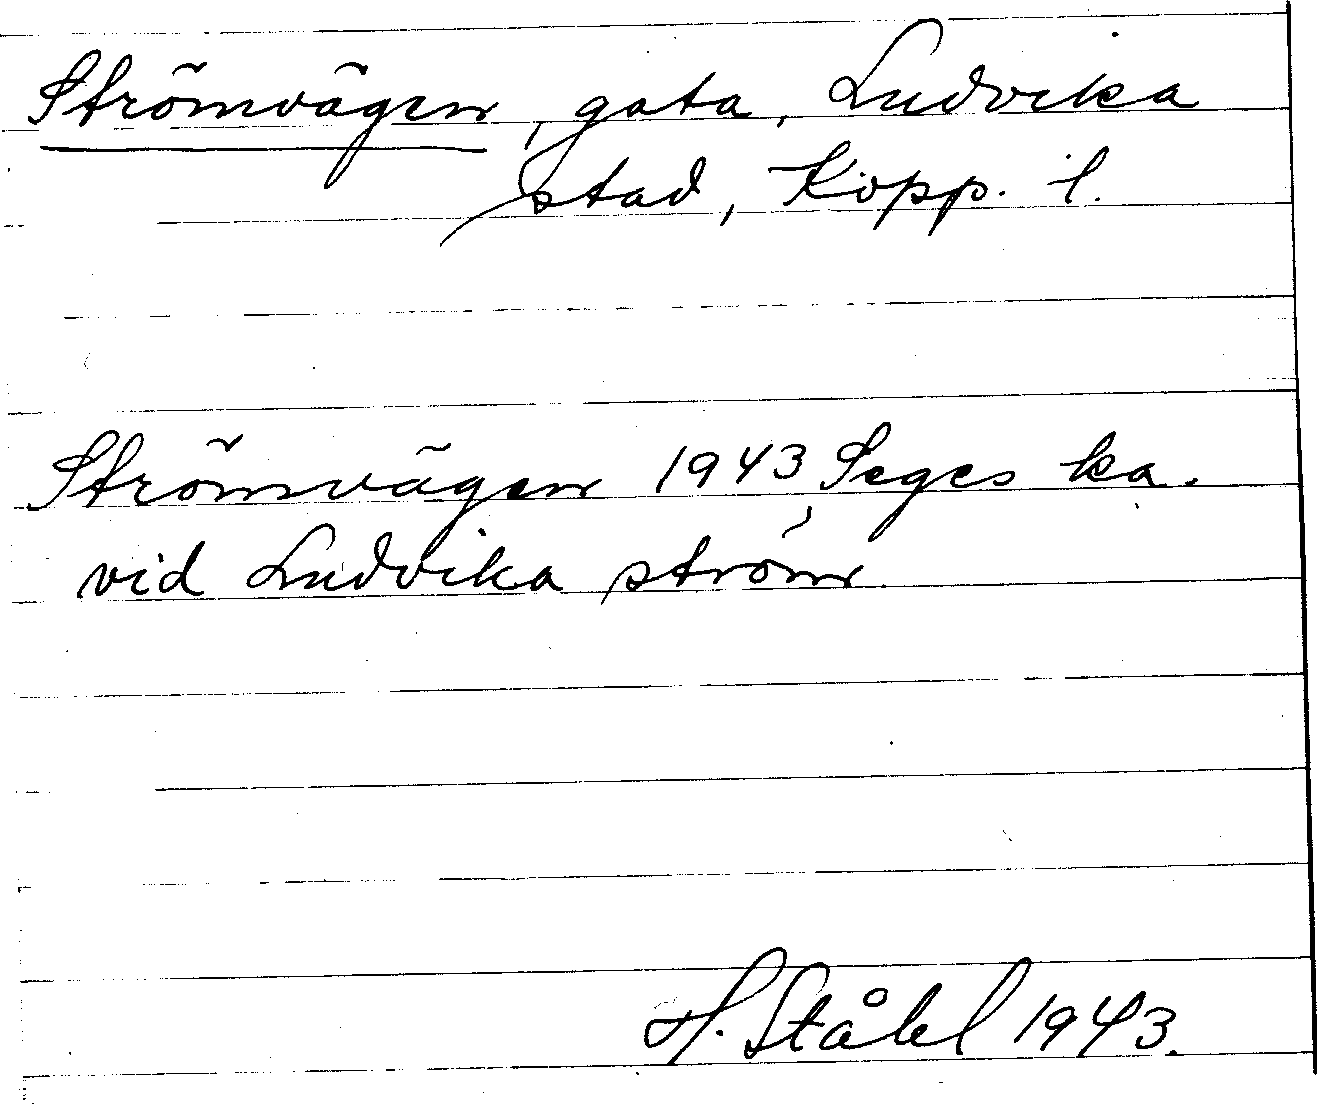 Strömvägen, gata, Ludvika
stad, Kopp. l.
Strömvägen 1943, Seges ka.
vid Ludvika ström
H. Ståhl 1943.